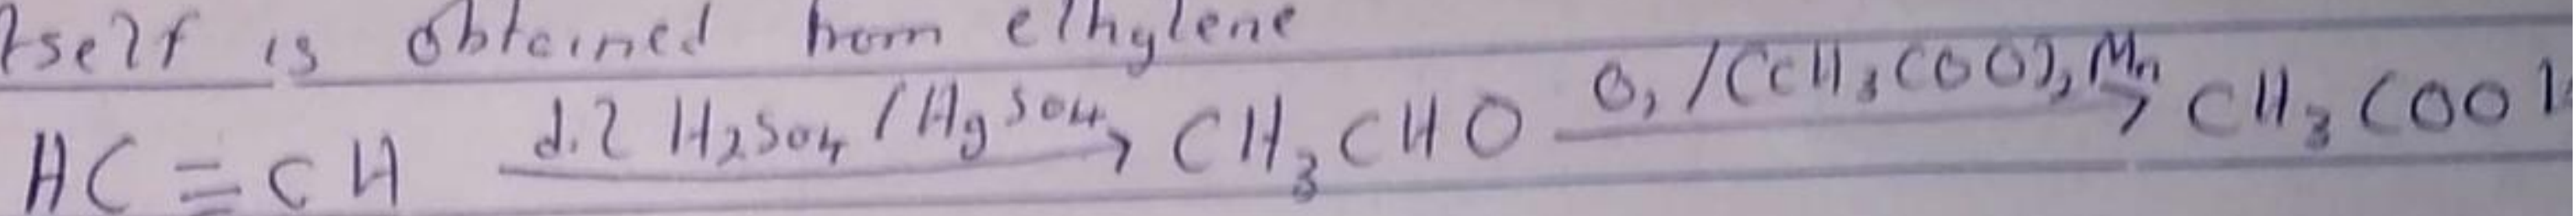 itself is obtained from ethylene
HC ≡ CH dil H2SO4 / HgSO4 → CH3CHO O2 / (CH3COO)2 Mn → CH3COOH